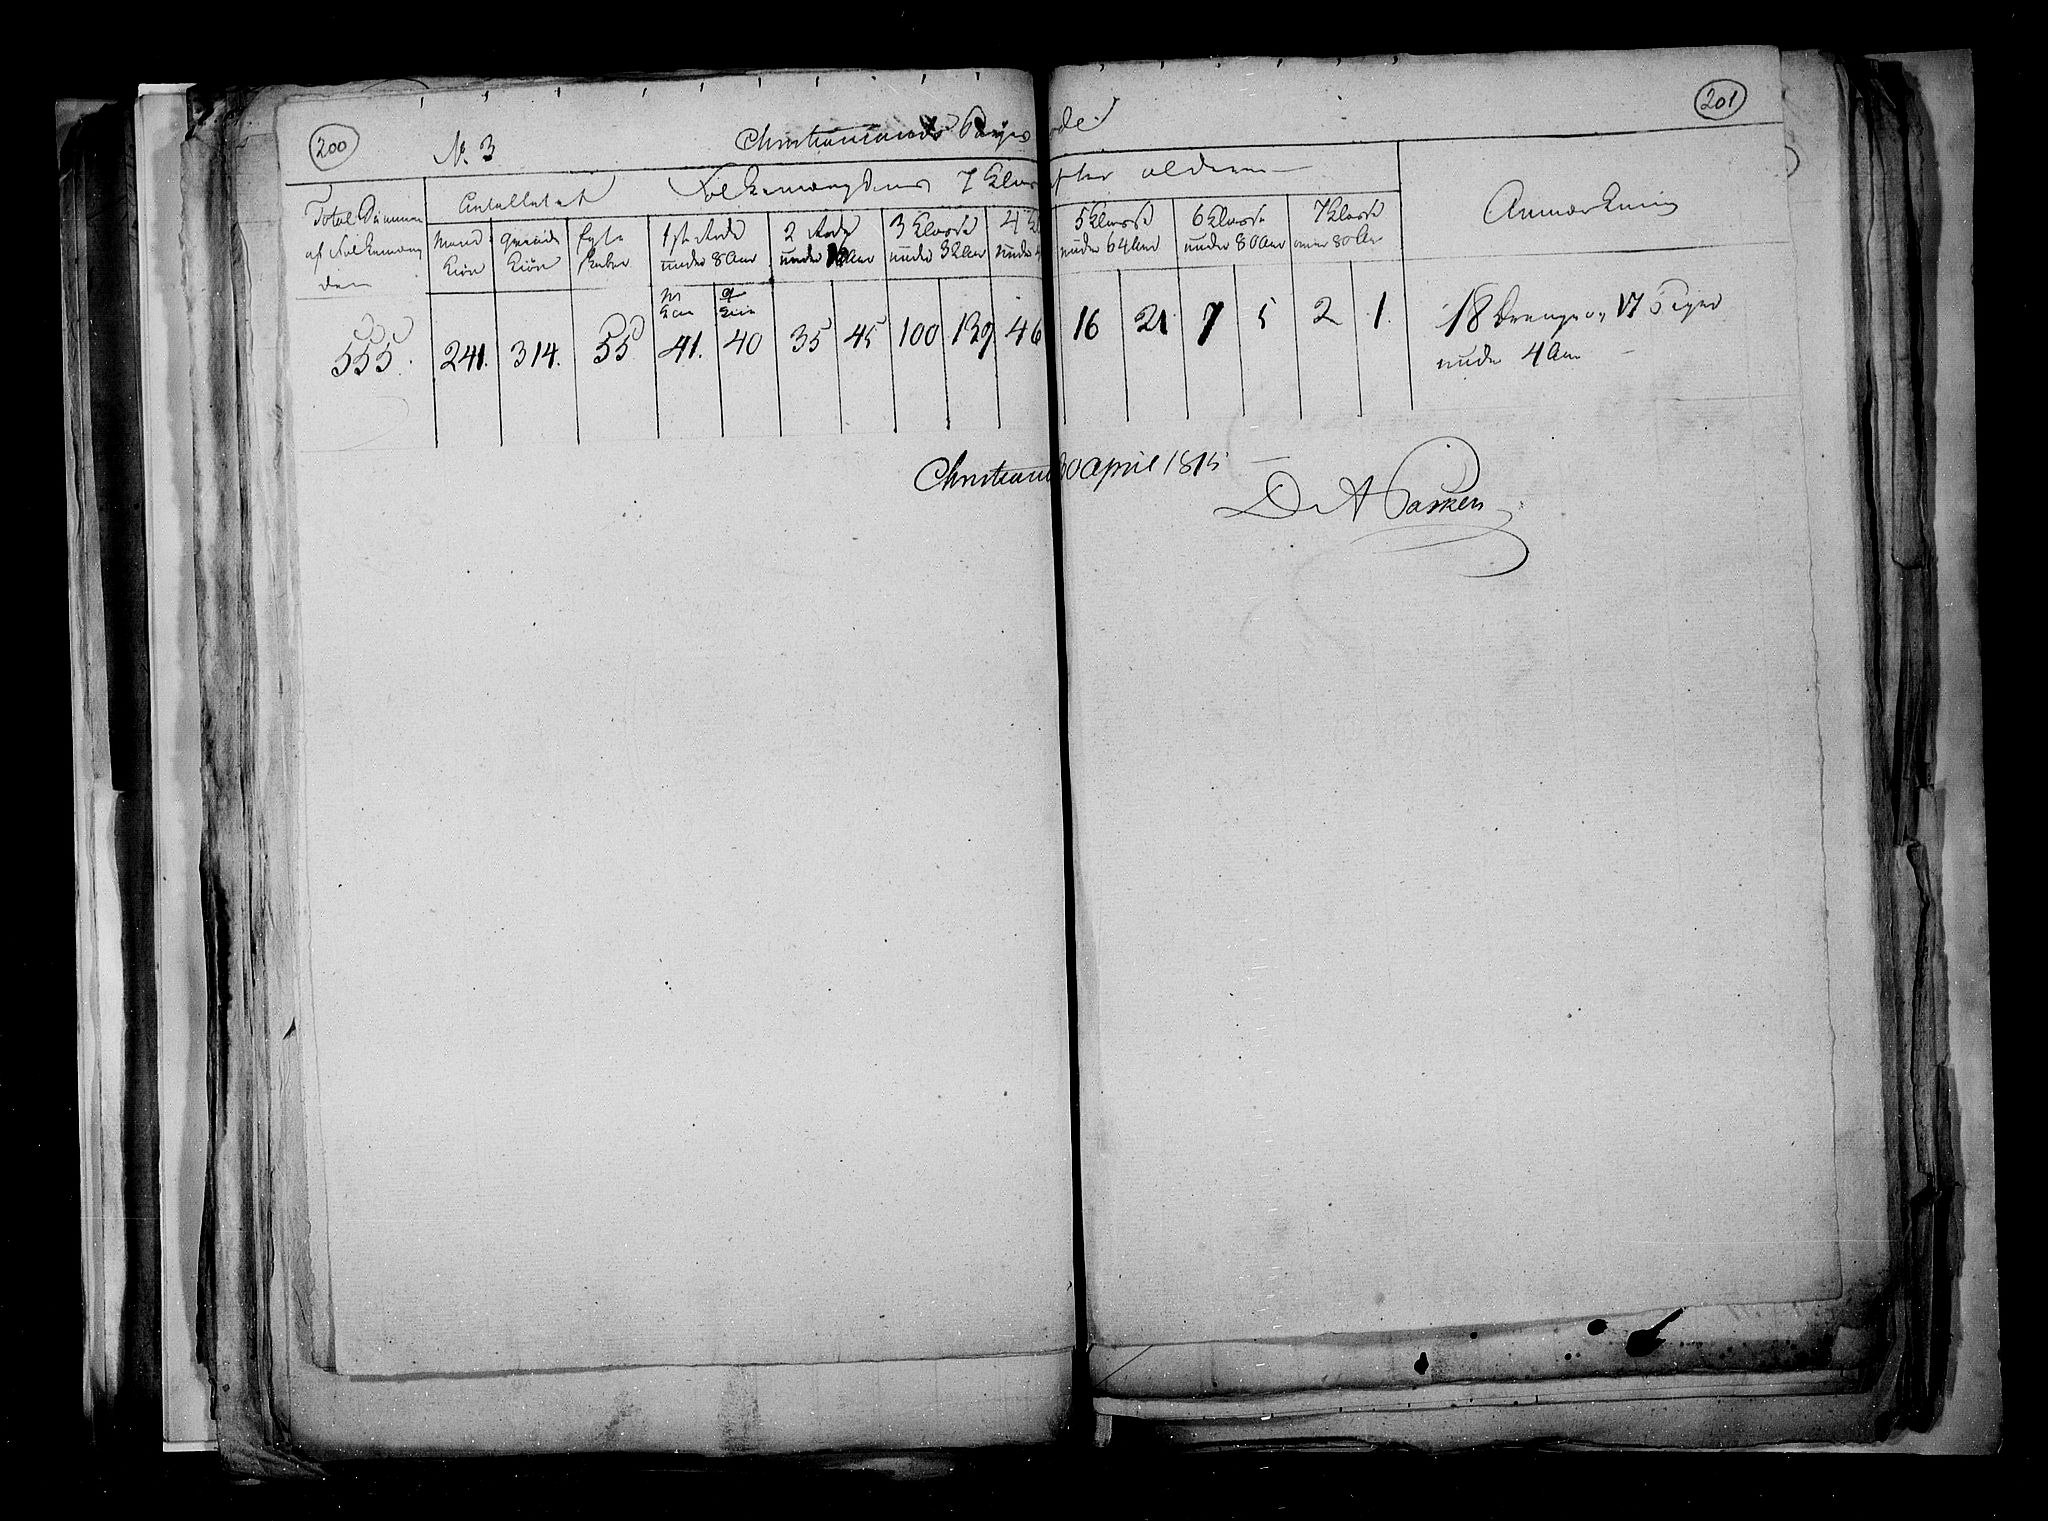 200
201
N. 3 Christiansands Byes ode
Total Summen af Folkemængden
Antallet af
Folkemængdens 7 Klas fter alderen
Anmærkning
Mand Kiøn
Qvinde Kiøn
Egteskaber
1ste Klasse under 8 Aar
2 Klasse under Aar
3 Klasse under 32 Aar
4 Kl under 4
5 Klasse under 64 Aar
6 Klasse under 80 Aar
7 Klasse over 80 Aar
M Kiøn
Q Kiøn
555. 241. 314. 55 41. 40 35 45 100 139 46 16 21 7 5 2 1.
18 Drenge og 17 Piger
under 4 Aar
Christians 30 April 1815